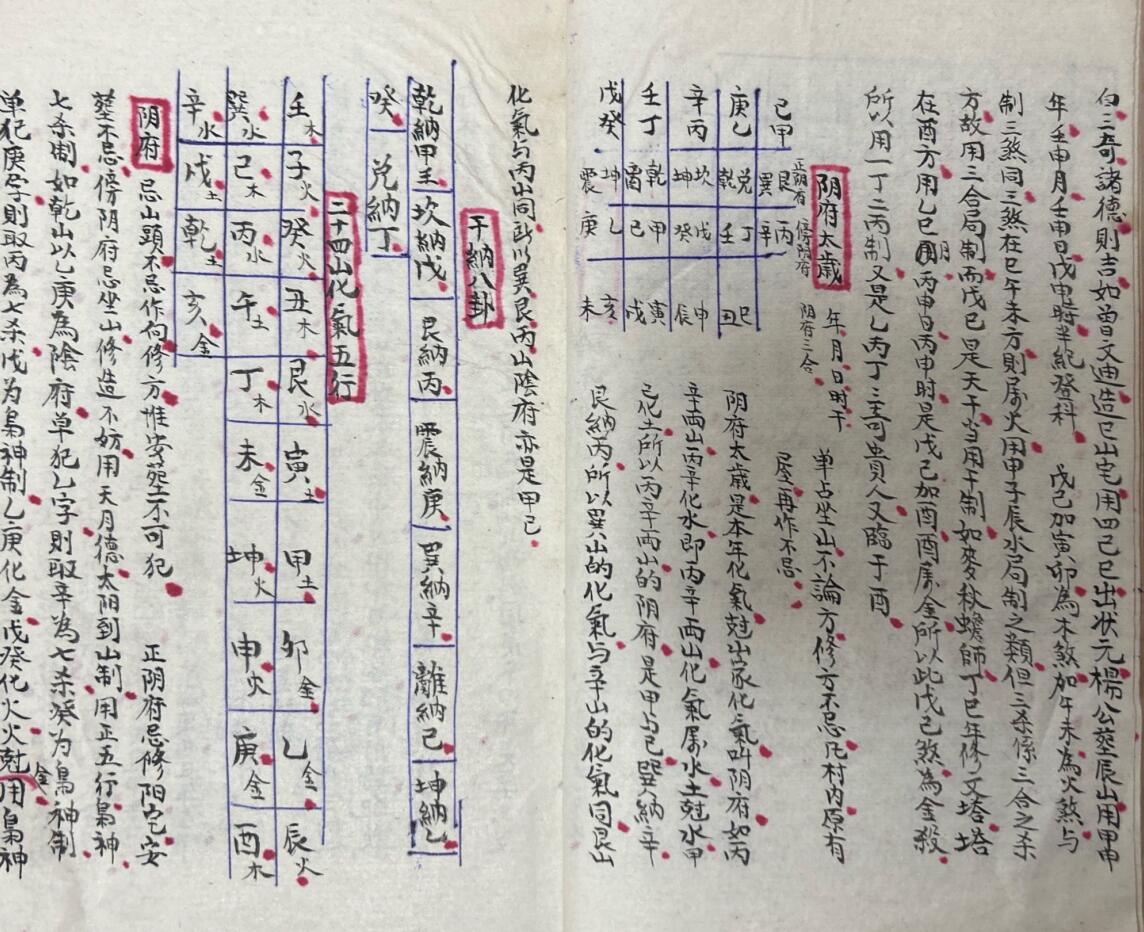 白三奇諸德則吉如曾文迪造巳山宅用四己巳出状元楊公墓辰山用甲申
年壬申月壬申日戊申時半紀登科 戊己加寅卯為木煞加午未為火煞与
制三煞同三煞在巳午未方則属火用申子辰水局制之類但三杀係三合之杀
方故用三合局制而戊己是天干当用干制如麥秋蟾師丁巳年修文塔塔
在酉方用乙巳月丙申日丙申时是戊己加酉酉属金所以此戊己煞為金殺
所以用一丁二丙制又是乙丙丁三奇貴人又臨于酉
阴府太歲 年月日时干 单占坐山不論方修方不忌凡村内原有
屋再作不忌
正阴府 傍阴府 阴府三合
己甲 艮巽 丙辛
庚乙 兑乾 丁壬 巳丑
辛丙 坎坤 戊癸 申辰
壬丁 乾离 甲己 寅戌
戊癸 坤震 乙庚 亥未
阴府太歲是本年化氣尅山家化氣叫阴府如丙
辛两山丙辛化水即丙辛两山化氣属水土尅水甲
己化土所以丙辛两山的阴府是甲与己巽納辛
艮納丙所以巽山的化氣与辛山的化氣同艮山
化氣与丙山同所以巽艮丙山陰府亦是甲己
干納八卦
乾納甲壬 坎納戊 艮納丙 震納庚 巽納辛 離納己 坤納乙
癸 兑納丁
二十四山化氣五行
壬木 子火 癸火 丑木 艮水 寅土 甲土 卯金 乙金 辰火
巽水 巳木 丙水 午土 丁木 未金 坤火 申火 庚金 酉木
辛水 戌土 乾土 亥金
阴府 忌山頭不忌作向修方惟安塟不可犯 正阴府忌修阳宅安
塟不忌傍阴府忌坐山修造不妨用天月德太阴到山制用正五行梟神
七杀制如乾山以乙庚為陰府单犯乙字則取辛為七杀癸为梟神制
单犯庚字則取丙為七杀戊为梟神制乙庚化金戊癸化火火尅金用梟神